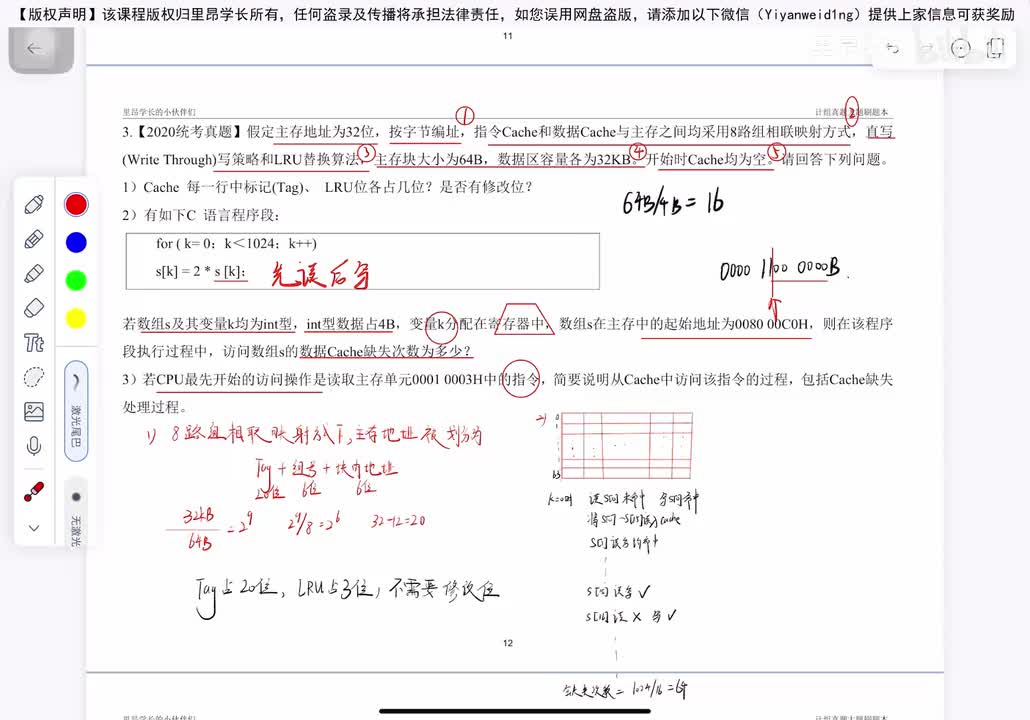 【版权声明】该课程版权归里昂学长所有，任何盗录及传播将承担法律责任，如您误用网盘盗版，请添加以下微信（Yiyanweid1ng）提供上家信息可获奖励
11
里昂学长的小伙伴们
3.【2020统考真题】假定主存地址为32位，按字节编址，指令Cache和数据Cache与主存之间均采用8路组相联映射方式，直写
(Write Through)写策略和LRU替换算法，主存块大小为64B，数据区容量各为32KB。开始时Cache均为空。请回答下列问题。
① ② ③ ④ ⑤
1）Cache 每一行中标记(Tag)、 LRU位各占几位？是否有修改位？
64B/4B = 16
2）有如下C 语言程序段：
for ( k= 0；k＜1024；k++)
s[k] = 2 * s [k]；
先读后写
0000 1100 0000B
若数组s及其变量k均为int型，int型数据占4B，变量k分配在寄存器中，数组s在主存中的起始地址为0080 00C0H，则在该程序
段执行过程中，访问数组s的数据Cache缺失次数为多少？
3）若CPU最先开始的访问操作是读取主存单元0001 0003H中的指令，简要说明从Cache中访问该指令的过程，包括Cache缺失
处理过程。
1) 8路组相联映射方式下，主存地址被划分为
Tag + 组号 + 块内地址
20位 6位 6位
32KB
64B
= 2^9
2^9/8 = 2^6
32-12=20
Tag占20位，LRU占3位，不需要修改位
2)
0
1
63
k=0时 读S[0]未命中 写S[0]命中
S[1]读写均命中
读写 ✓
读 × 写 ✓
缺失次数 = 1024/16 = 64
12
Tt
激光尾巴
无激光
里昂学长的小伙伴们